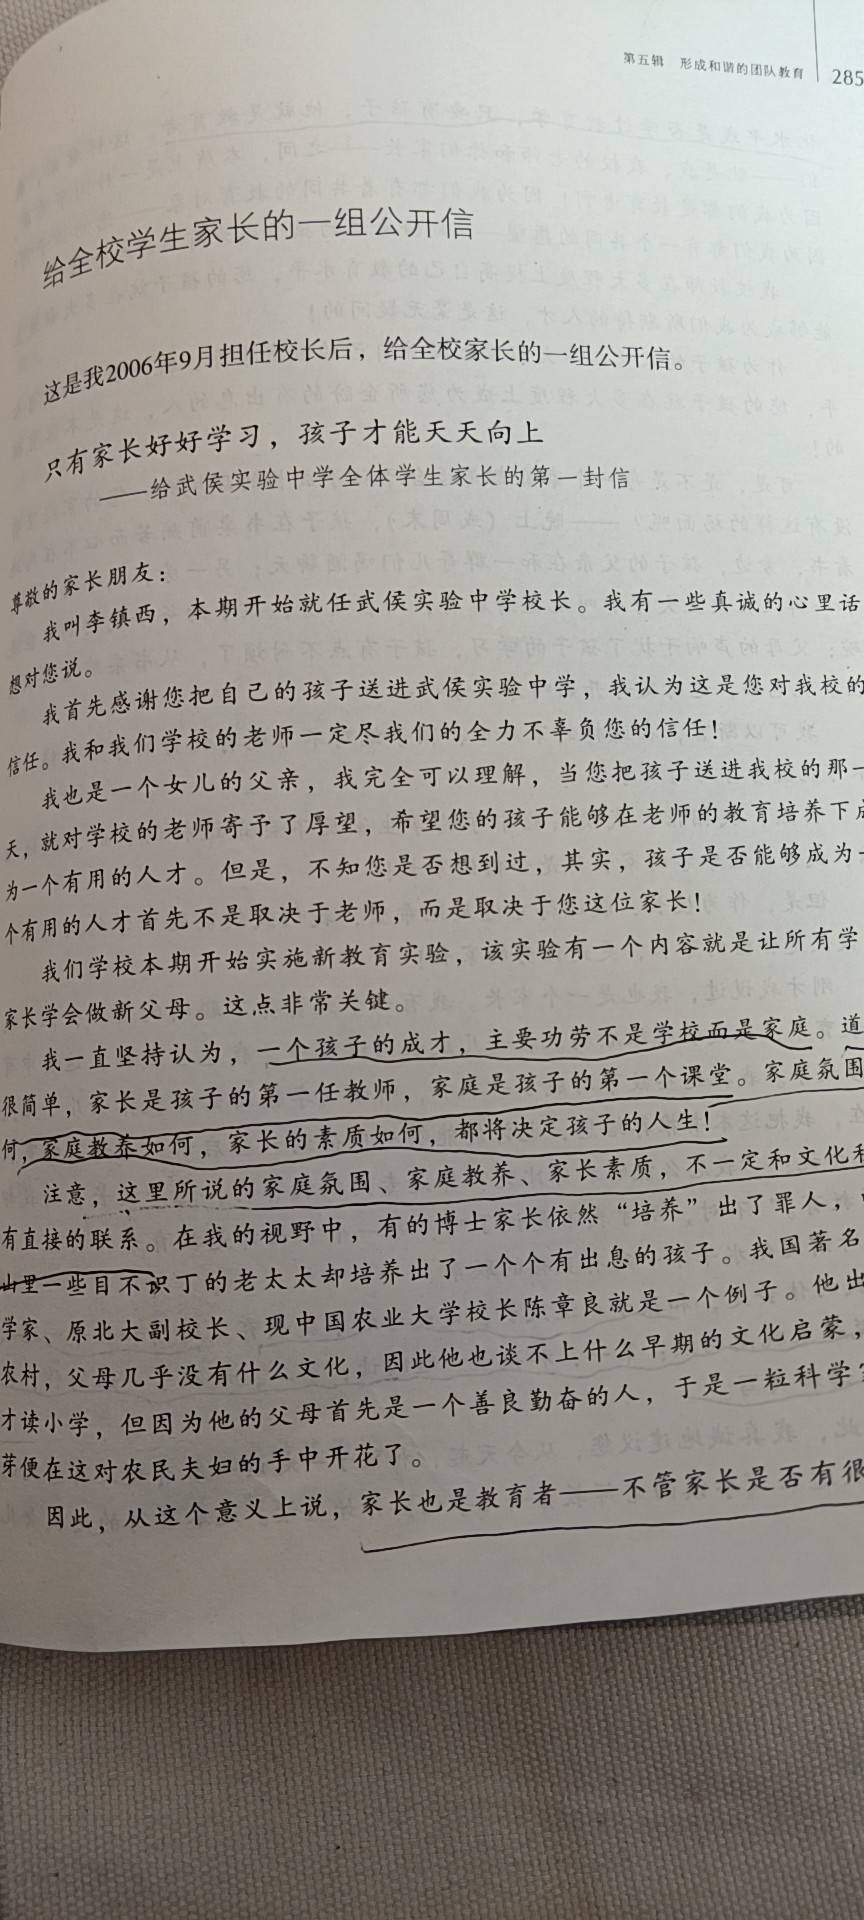 第五辑 形成和谐的团队教育 285
给全校学生家长的一组公开信
这是我2006年9月担任校长后，给全校家长的一组公开信。
只有家长好好学习，孩子才能天天向上
——给武侯实验中学全体学生家长的第一封信
尊敬的家长朋友：
我叫李镇西，本期开始就任武侯实验中学校长。我有一些真诚的心里话
想对您说。
我首先感谢您把自己的孩子送进武侯实验中学，我认为这是您对我校的
信任。我和我们学校的老师一定尽我们的全力不辜负您的信任！
我也是一个女儿的父亲，我完全可以理解，当您把孩子送进我校的那一
天，就对学校的老师寄予了厚望，希望您的孩子能够在老师的教育培养下成
为一个有用的人才。但是，不知您是否想到过，其实，孩子是否能够成为一
个有用的人才首先不是取决于老师，而是取决于您这位家长！
我们学校本期开始实施新教育实验，该实验有一个内容就是让所有学
家长学会做新父母。这点非常关键。
我一直坚持认为，一个孩子的成才，主要功劳不是学校而是家庭。道
很简单，家长是孩子的第一任教师，家庭是孩子的第一个课堂。家庭氛围
何，家庭教养如何，家长的素质如何，都将决定孩子的人生！
注意，这里所说的家庭氛围、家庭教养、家长素质，不一定和文化
有直接的联系。在我的视野中，有的博士家长依然“培养”出了罪人，
山里一些目不识丁的老太太却培养出了一个个有出息的孩子。我国著名
学家、原北大副校长、现中国农业大学校长陈章良就是一个例子。他出
农村，父母几乎没有什么文化，因此他也谈不上什么早期的文化启蒙，
才读小学，但因为他的父母首先是一个善良勤奋的人，于是一粒科学
芽便在这对农民夫妇的手中开花了。
因此，从这个意义上说，家长也是教育者——不管家长是否有很